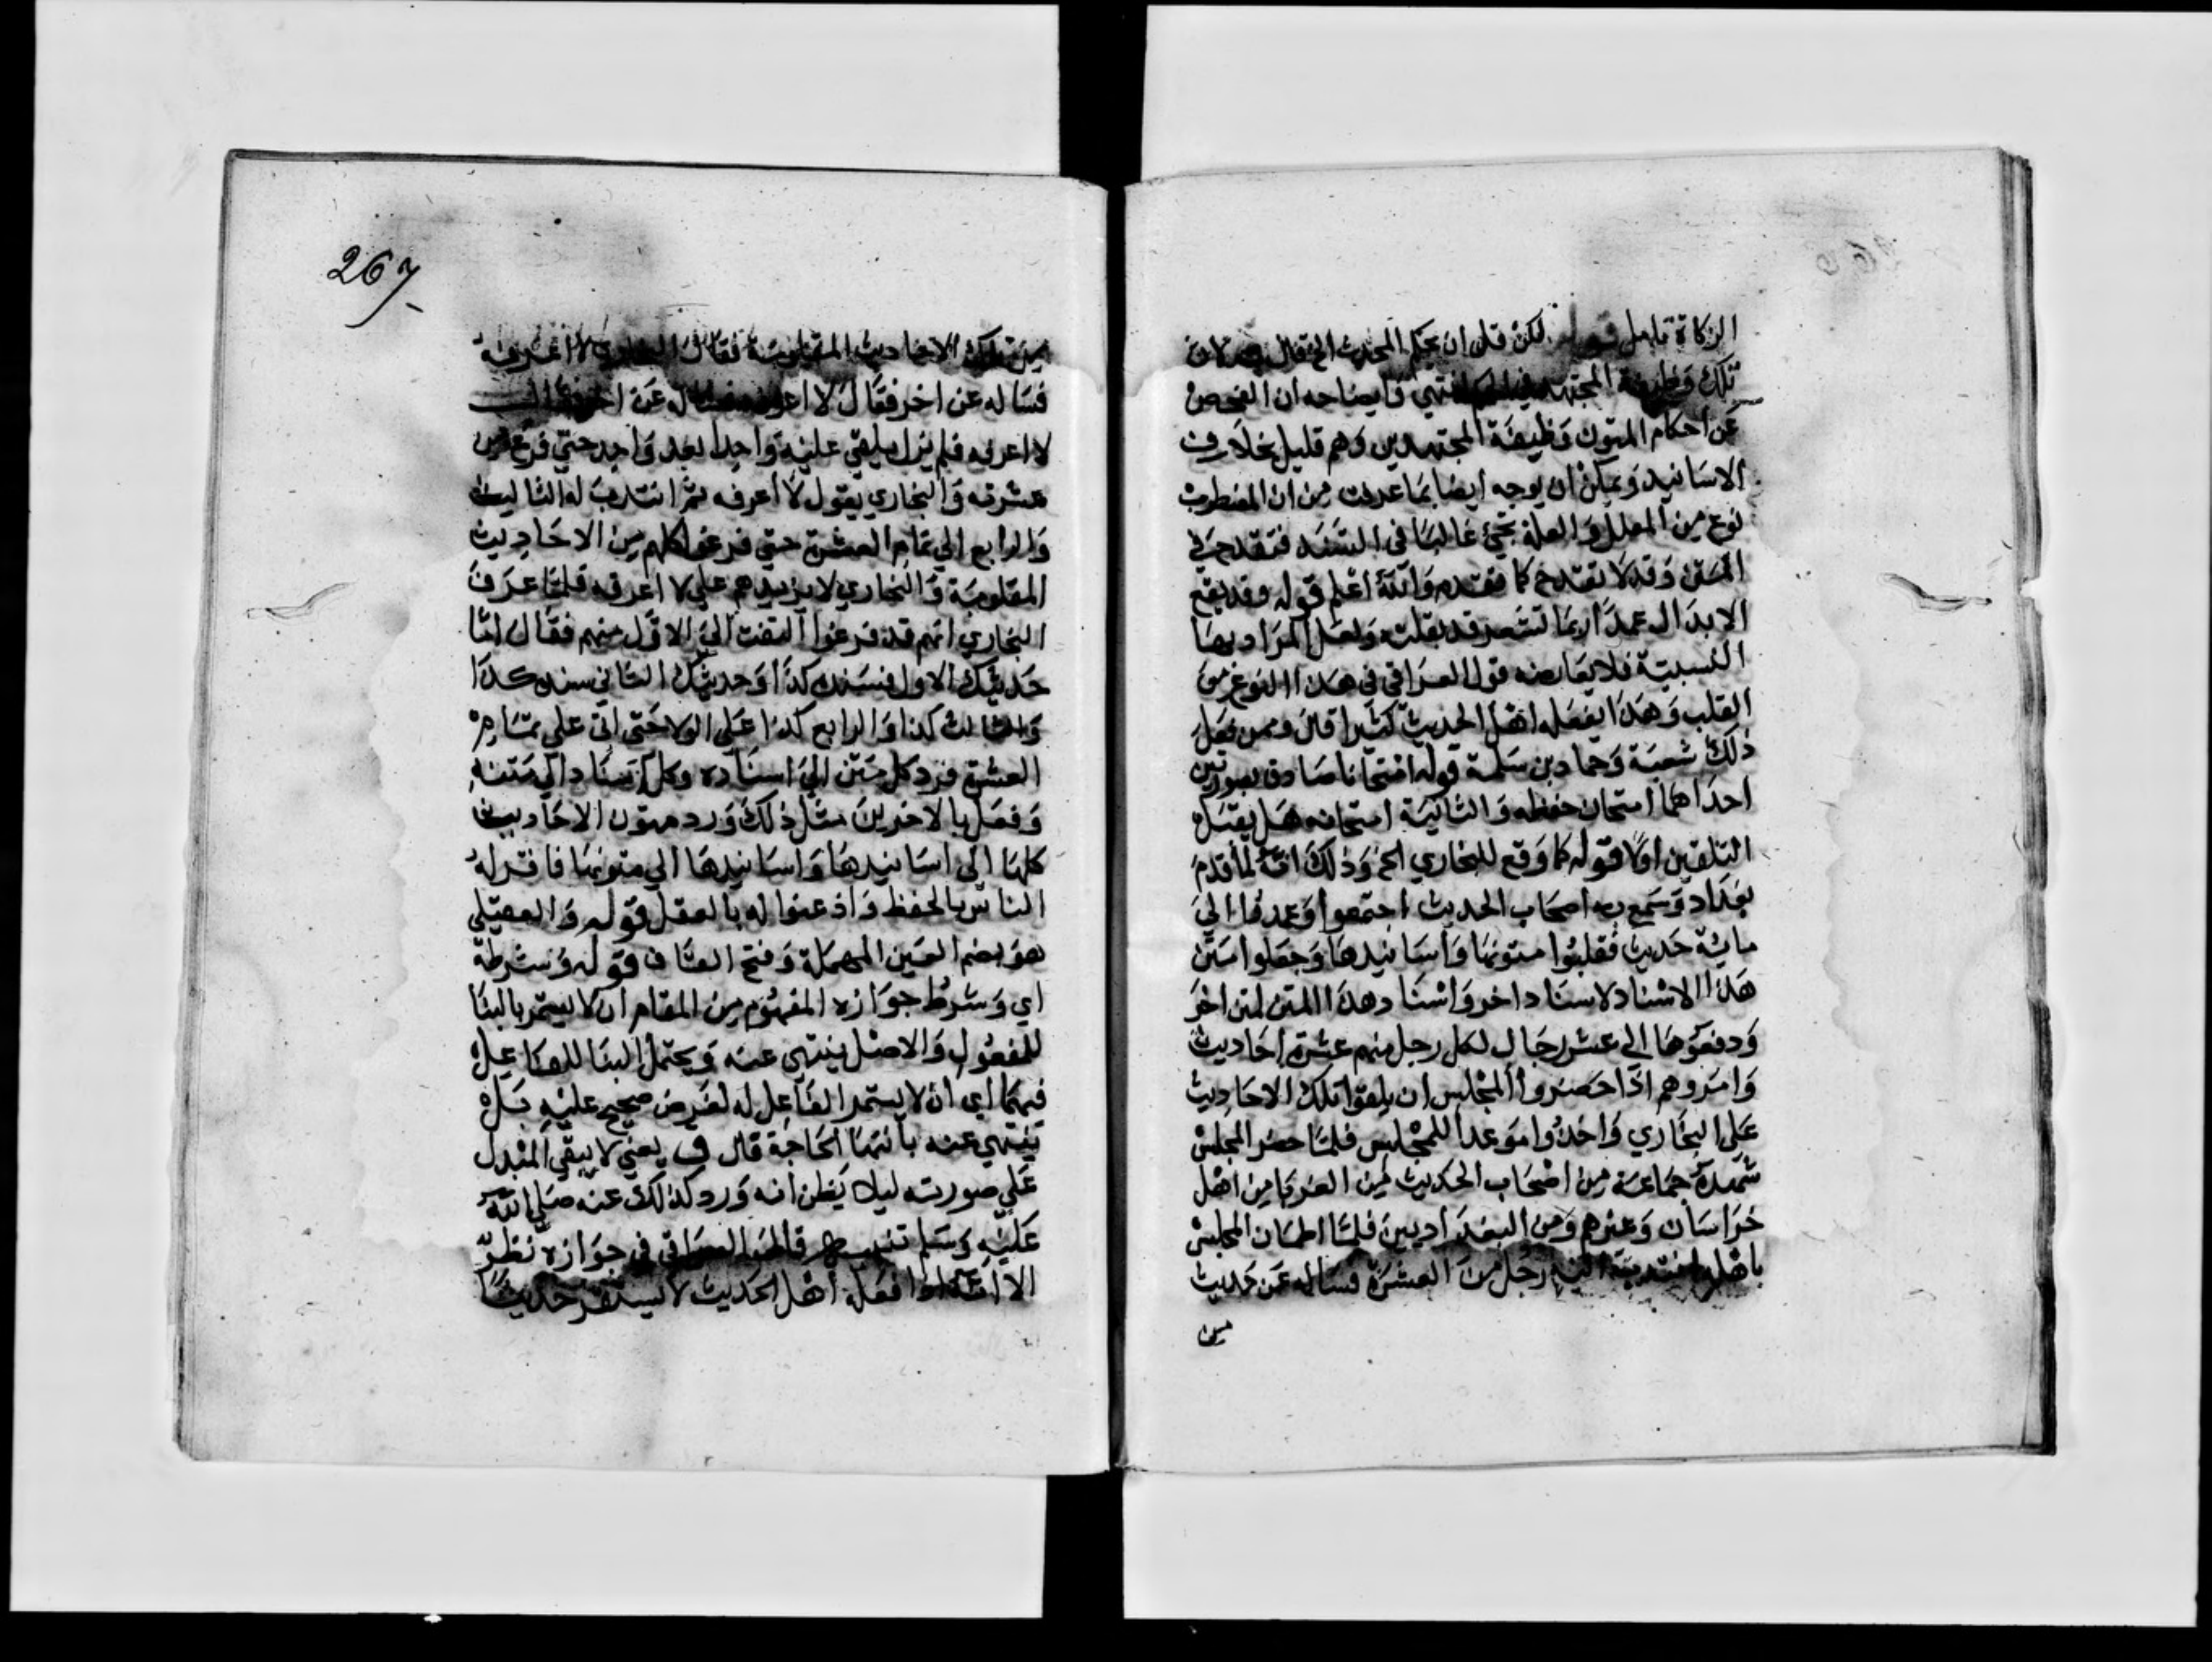 الزكاة تامل قوله لكن قل ان يحكم المحدث الخ قال
تلك وظيفة المجتهد في انتهي وايضاحه ان الفحص
عن احكام المتون وظيفة المجتهدين وهم قليل بخلاف
الاسانيد ويمكن ان يوجه ايضا بما عرفت من ان المضطرب
نوع من المعلل والعلة تجي غالبا في السند فتقدح في
المتن وقد لا تقدح كما تقدم والله اعلم قوله وقد يقع
الابدال عمدا ربما تشعر قد بقلته ولعل المراد بها
النسبية فلا يعارضه قول العراقي في هذا النوع من
القلب وهذا يفعله اهل الحديث كثيرا قال وممن فعل
ذلك شعبة وحماد بن سلمة قوله امتحانا صادق بصورتين
احداهما امتحان حفظه والثانية امتحانه هل يقبل
التلقين اولا قوله كما وقع للبخاري الخ وذلك انه لما قدم
بغداد وسمع به اصحاب الحديث اجتمعوا وعمدوا الي
ماية حديث فقلبوا متونها واسانيدها وجعلوا متن
هذا الاسناد لاسناد اخر واسناد هذا المتن لمتن اخر
ودفعوها الي عشر رجال لكل رجل منهم عشرة احاديث
وامروهم اذا حضروا المجلس ان يلقوا تلك الاحاديث
علي البخاري واخذوا موعدا للمجلس فلما حضر المجلس
شهده جماعة من اصحاب الحديث من الغربا من اهل
خراسان وغيرهم ومن البغداديين فلما اطمان المجلس
باهله انتدب اليه رجل من العشرة فساله عن حديث
من
من تلك الاحاديث المقلوبة فقال البخاري لا اعرفه
فساله عن اخر فقال لا اعرفه فساله عن اخر فقال
لا اعرفه فلم يزل يلقي عليه واحدا بعد واحد حتي فرغ من
عشرته والبخاري يقول لا اعرفه ثم انتدب له الثالث
والرابع الي تمام العشرة حتي فرغوا كلهم من الاحاديث
المقلوبة والبخاري لا يزيدهم علي لا اعرفه فلما عرف
البخاري انهم قد فرغوا التفت الي الاول منهم فقال اما
حديثك الاول فسنده كذا وحديثك الثاني سنده كذا
والثالث كذا والرابع كذا علي الولا حتي اتي علي تمام
العشرة فرد كل متن الي اسناده وكل اسناد الي متنه
وفعل بالاخرين مثل ذلك ورد متون الاحاديث
كلها الي اسانيدها واسانيدها الي متونها فاقر له
الناس بالحفظ واذعنوا له بالعقل قوله والعقيلي
هو بضم العين المهملة وفتح القاف قوله وشرطه
اي وشرط جوازه المفهوم من المقام ان لا يستمر بالبنا
للمفعول والاصل ينتهي عنه ويحتمل البنا للفاعل
فيهما اي ان لا يستمر الفاعل له لغرض صحيح عليه بل
ينتهي عنه بانتها الحاجة قال ق يعني لا يبقي المبدل
علي صورته ليلا يظن انه ورد كذلك عنه صلي الله
عليه وسلم تنبيه قال العراقي في جوازه نظر
الا انه اذا فعله اهل الحديث لا يستقر حديثا
267